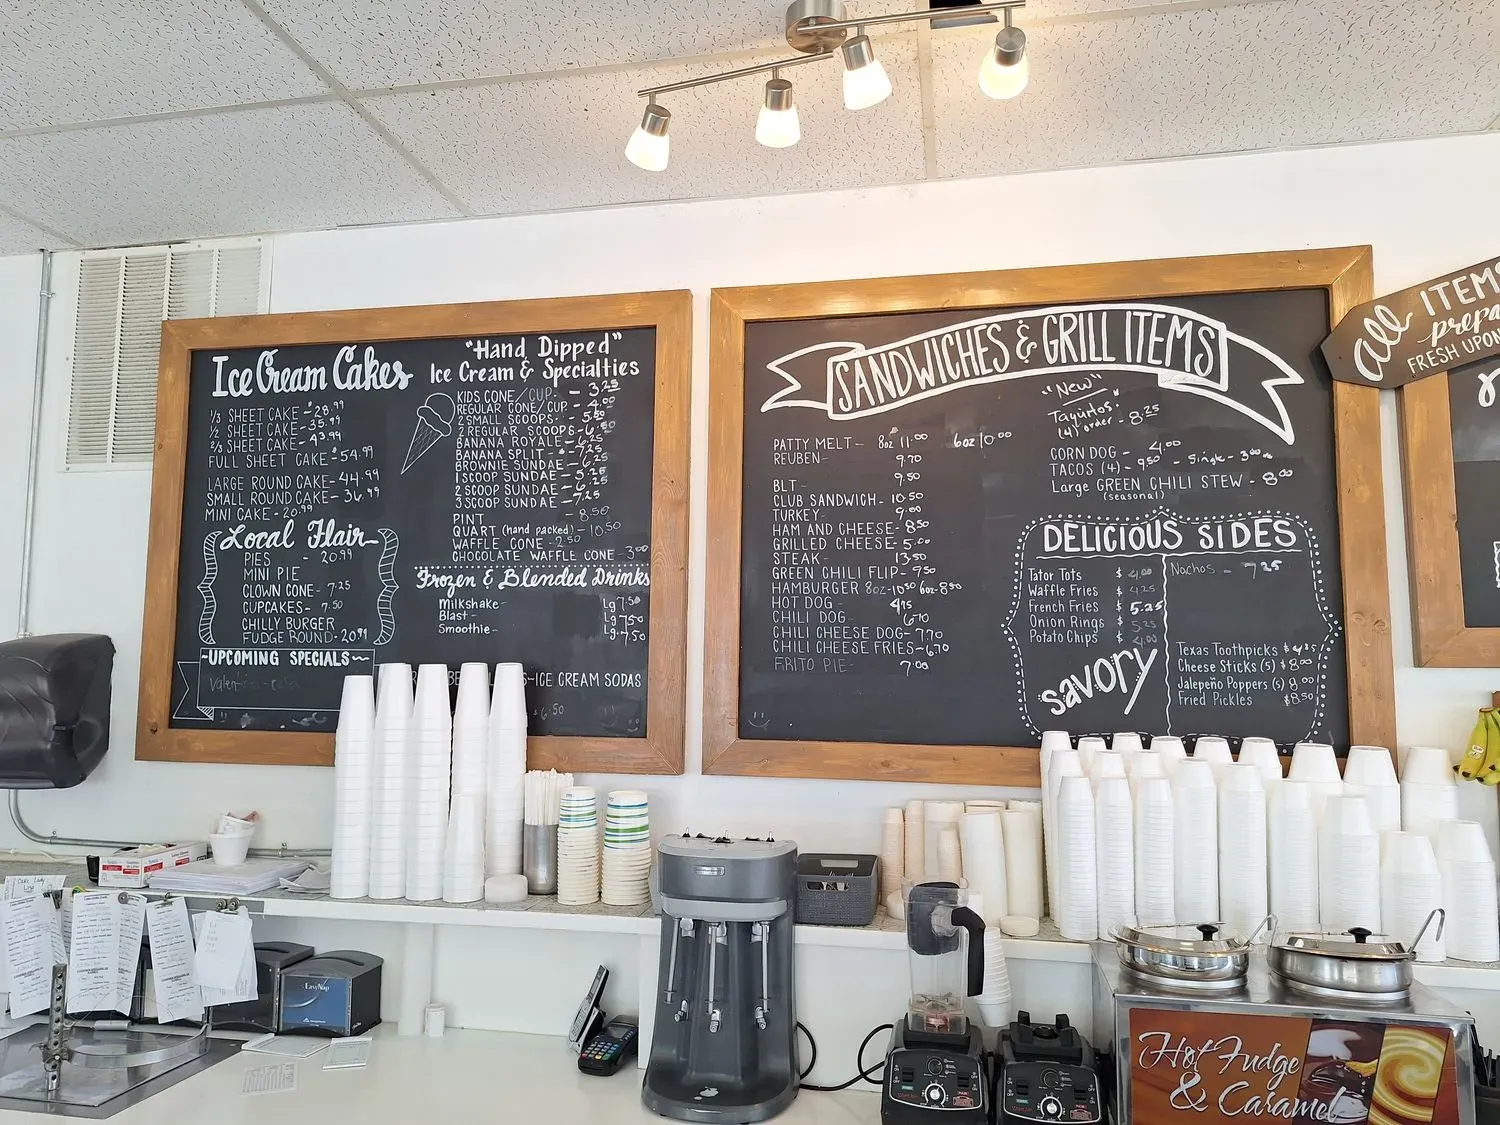 Ice Cream Cakes
1/3 SHEET CAKE - $28.99
1/2 SHEET CAKE - 35.99
2/3 SHEET CAKE - 43.99
FULL SHEET CAKE $54.99
LARGE ROUND CAKE - 44.99
SMALL ROUND CAKE - 36.99
MINI CAKE - 20.99
Local Flair
PIES - 20.99
MINI PIE
CLOWN CONE - 7.25
CUPCAKES - 7.50
CHILLY BURGER
FUDGE ROUND - 20.99
~UPCOMING SPECIALS~
"Hand Dipped"
Ice Cream & Specialties
KIDS CONE/CUP - 3.25
REGULAR CONE/CUP - 4.00
2 SMALL SCOOPS - 5.50
2 REGULAR SCOOPS - 6.50
BANANA ROYALE - 6.25
BANANA SPLIT - 7.25
BROWNIE SUNDAE - 6.25
1 SCOOP SUNDAE - 5.25
2 SCOOP SUNDAE - 6.25
3 SCOOP SUNDAE - 7.25
PINT - 8.50
QUART (hand packed) - 10.50
WAFFLE CONE - 2.50
CHOCOLATE WAFFLE CONE - 3.00
Frozen & Blended Drinks
Milkshake - Lg 7.50
Blast - Lg 7.50
Smoothie - Lg 7.50
ICE CREAM SODAS
6.50
SANDWICHES & GRILL ITEMS
PATTY MELT - 8oz 11.00 6oz 10.00
REUBEN - 9.70
BLT - 9.50
CLUB SANDWICH - 10.50
TURKEY - 9.00
HAM AND CHEESE - 8.50
GRILLED CHEESE - 5.00
STEAK - 13.50
GREEN CHILI FLIP - 9.50
HAMBURGER 8oz - 10.50 6oz - 8.50
HOT DOG - 4.75
CHILI DOG - 6.70
CHILI CHEESE DOG - 7.70
CHILI CHEESE FRIES - 6.70
FRITO PIE - 7.00
"New"
Taquitos
(4) order - 8.25
CORN DOG - 4.00
TACOS (4) - 9.50 - Single - 3.00
Large GREEN CHILI STEW - 8.00
(seasonal)
DELICIOUS SIDES
Tator Tots $ 4.00
Waffle Fries $ 4.25
French Fries $ 5.25
Onion Rings $ 5.25
Potato Chips $ 4.00
savory
Nachos - 7.25
Texas Toothpicks $4.25
Cheese Sticks (5) $8.00
Jalepeño Poppers (5) 8.00
Fried Pickles $8.50
All ITEMS
prepa
FRESH UPON
EasyNap
Hot Fudge
& Caramel